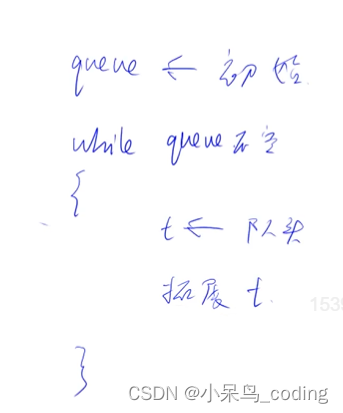 queue ← 初始
while queue不空
{
t ← 队头
拓展 t
1539
}
CSDN @小呆鸟_coding